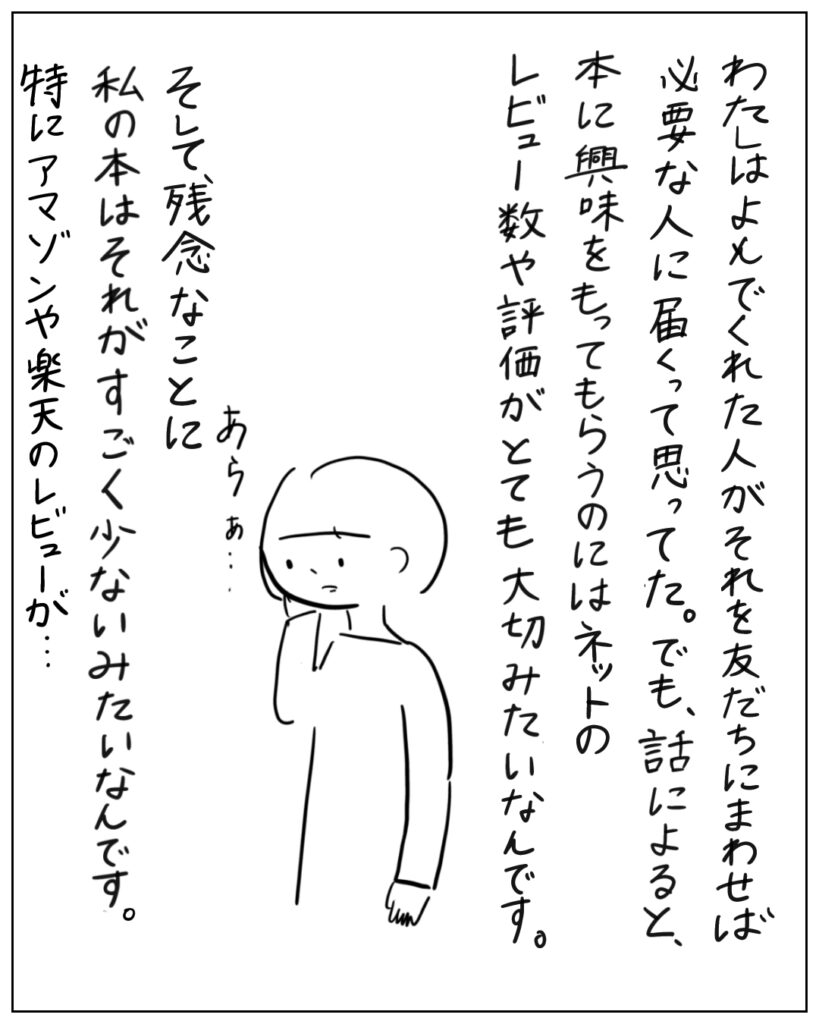 わたしはよんでくれた人がそれを友だちにまわせば
必要な人に届くって思ってた。でも、話によると、
本に興味をもってもらうのにはネットの
レビュー数や評価がとても大切みたいなんです。
あらぁ…
そして、残念なことに
私の本はそれがすごく少ないみたいなんです。
特にアマゾンや楽天のレビューが…